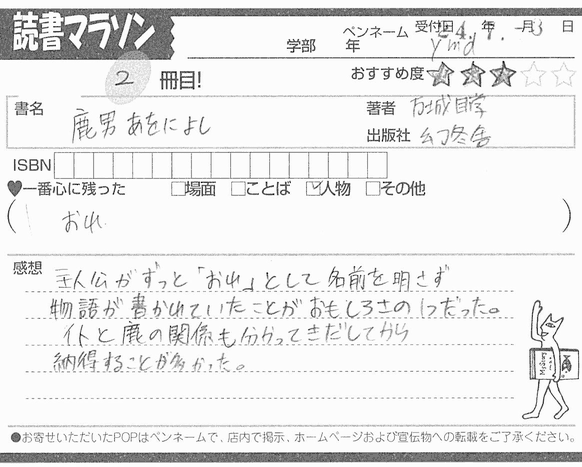 読書マラソン
学部 年 ペンネーム ymd 受付日 年 月 日
2 冊目!
おすすめ度 ★★★☆☆
書名 鹿男 あをによし
著者 万城目学
出版社 幻冬舎
ISBN
♥一番心に残った □場面 □ことば ☑人物 □その他
( おれ )
感想
主人公がずっと「おれ」として名前を明さず
物語が書かれていたことがおもしろさの1つだった。
イトと鹿の関係も分かってきだしてから
納得することが多かった。
●お寄せいただいたPOPはペンネームで、店内で掲示、ホームページおよび宣伝物への転載をご了承ください。